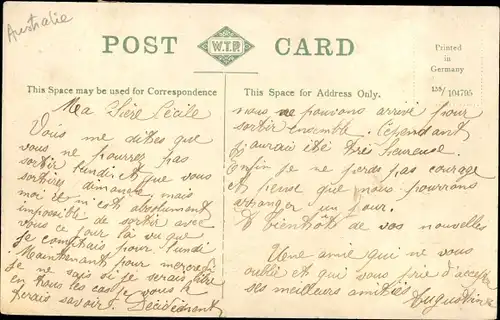 Australie
POST CARD
W.T.P.
Printed
in
Germany
138/104795
This Space may be used for Correspondence
This Space for Address Only.
Ma Chère Cécile
Vous me dites que
vous ne pourrez pas
sortir lundi et que vous
sortirez dimanche, mais
moi il m'est absolument
impossible de sortir avec
vous ce jour là vu que
je comptais pour lundi
Maintenant pour mercredi
je ne sais si je serais libre
en tous les cas je vous le
ferais savoir. Décidément
nous ne pouvons arrivé pour
sortir ensemble. Cependant
j'aurais été très heureuse.
Enfin je ne perds pas courage
et pense que nous pourrons
arranger un jour.
A bientôt de vos nouvelles
Une amie qui ne vous
oublie et qui vous prie d'accepter
ses meilleurs amitiés
Augustine